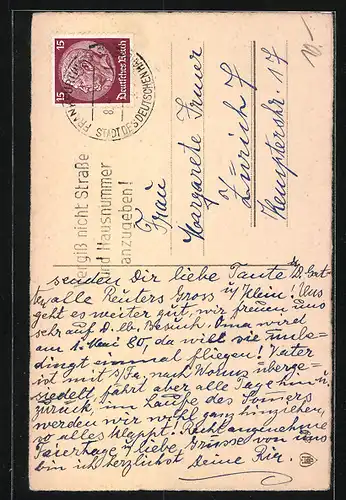 10.-
15
15
Deutsches Reich
FRANKFURT
STADT DES DEUTSCHEN
vergiß nicht Straße
und Hausnummer
anzugeben!
Frau
Margarete Irmer
Zürich 7
Kempterstr. 17
senden Dir liebe Tante
alle Reuters Gross u/ Klein! Uns
geht es weiter gut, wir freuen uns
sehr auf D. lb. Besuch. Oma wird
am 1. Mai 80, da will sie unbe-
dingt einmal fliegen! Vater
ist mit nach Worms überge-
siedelt, fährt aber alle Tage hin u.
zurück, im Laufe des Somers
werden wir wohl ganz hinziehen,
wo alles klappt! Recht angenehme
Feiertage u/ liebe Grüsse von uns
bin ich herzlichst Deine Ria.